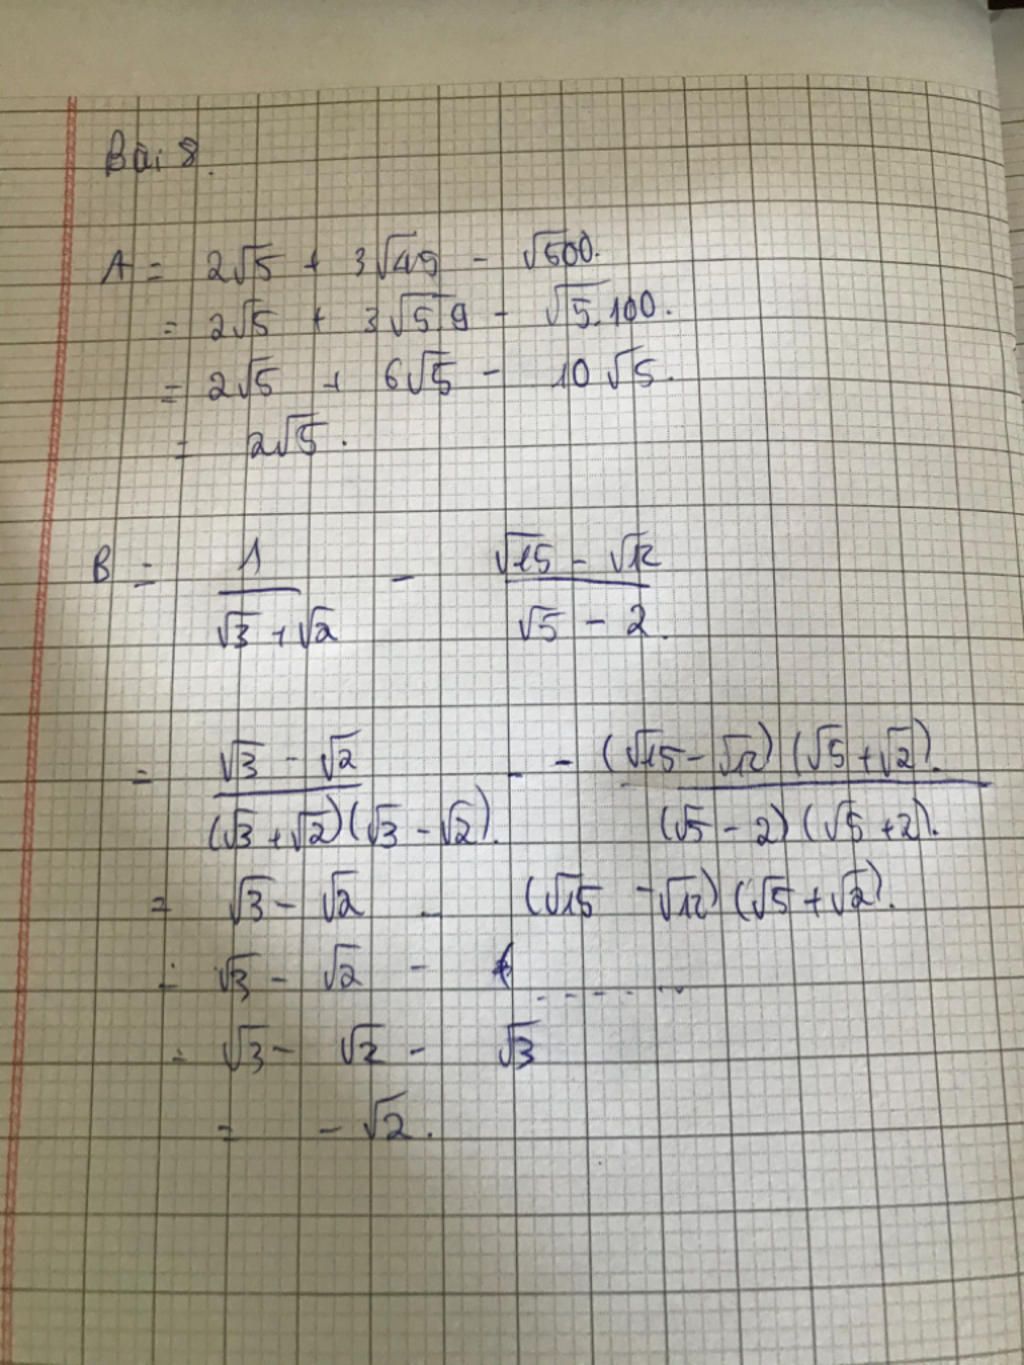 Bài 8.
A = 2√5 + 3√45 - √500.
= 2√5 + 3√5.9 - √5.100.
= 2√5 + 6√5 - 10√5.
= 2√5.
B = 1/(√3 + √2) - (√15 - √12)/(√5 - 2).
= (√3 - √2)/((√3 + √2)(√3 - √2)). - - ((√15 - √12)(√5 + √2).)/((√5 - 2)(√5 + 2).)
= √3 - √2 - (√15 - √12)(√5 + √2).
= √3 - √2 - ( - - - - - -
= √3 - √2 - √3
= - √2.